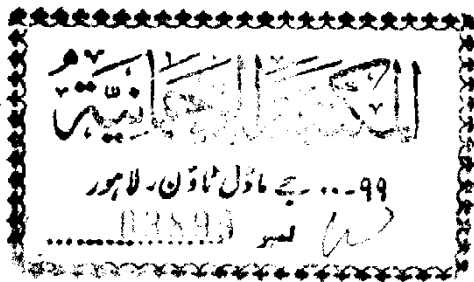 المکتبۃ الرحمانیۃ
۹۹۔۔۔ جے ماڈل ٹاؤن۔ لاہور
نمبر